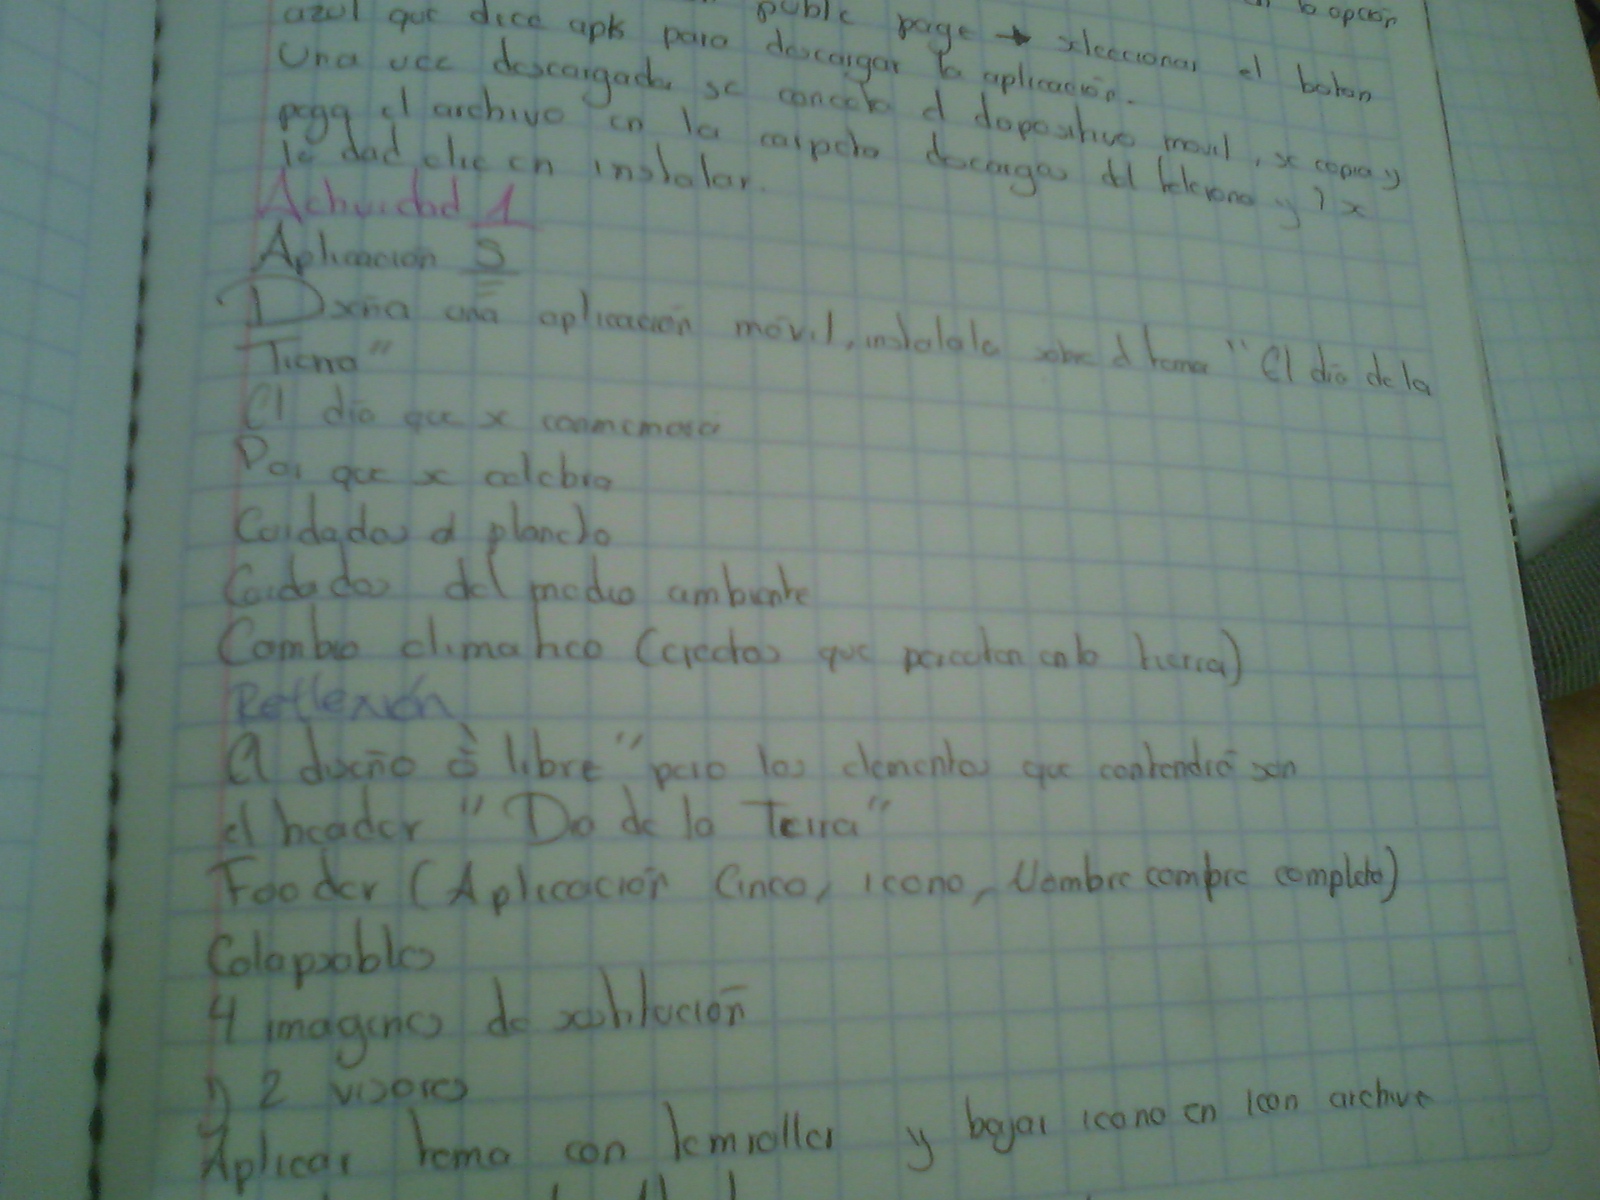 la opción
public page → seleccionar el boton
azul que dice apk para descargar la aplicación.
Una vez descargada se conecta el dopositivo movil, se copia y
pega el archivo en la carpeta descargas del telefono y
le dad clic en instalar.
Actividad 1
Aplicacion 5
Diseña una aplicación móvil, instalala sobre el tema "El día de la
Tierra"
El día que se conmemora
Por que se celebra
Cuidados el planeta
Cuidados del medio ambiente
Cambio climatico (efectos que percuten en la tierra)
Reflexión
El diseño è libre" pero los elementos que contendrá son
el header "Dia de la Tierra"
Fooder (Aplicación Cinco, icono, Nombre compre completo)
Colapsables
4 imagenes de sustitución
y 2 visores
Aplicar tema con temroller y bajar icono en icon archive